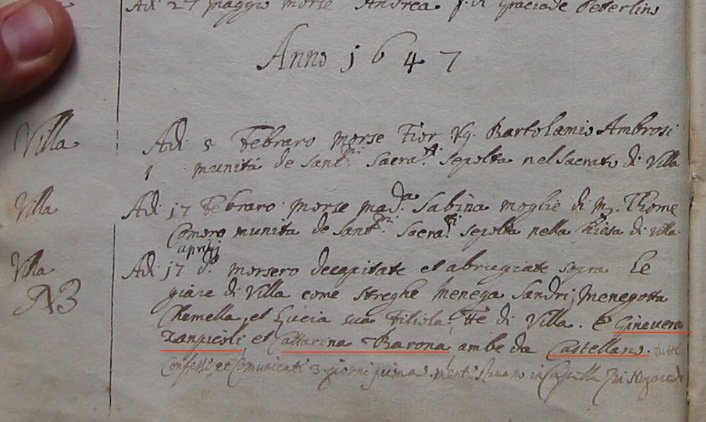 Adi 27 Maggio morse Andrea f. di Graciade Peterlino
Anno 1647
Villa
Adi 5 Febraro morse Fior Kq. Bartolamio Ambrosi
munita de Sant.mi Sacra.ti Sepolta nel Sacrato di Villa
Villa
Adi 17 Febraro morse mad.a Sabina moglie di m.r Thome
Comoro munita de Sant.mi Sacra.ti Sepolta nella Chiesa di Villa
Villa
NB
aprilj
Adi 17 d.o morsero decapitate et abrugiate sopra le
giare di Villa come streghe Menega Sandri, Menegotta
Chemella, et Lucia sua filiola, tte di Villa. E Ginevera
Zanpicoli et Cattarina Barona ambe da Castellano. tutte
Confessi et Comunicati 3 giorni prima in Capella